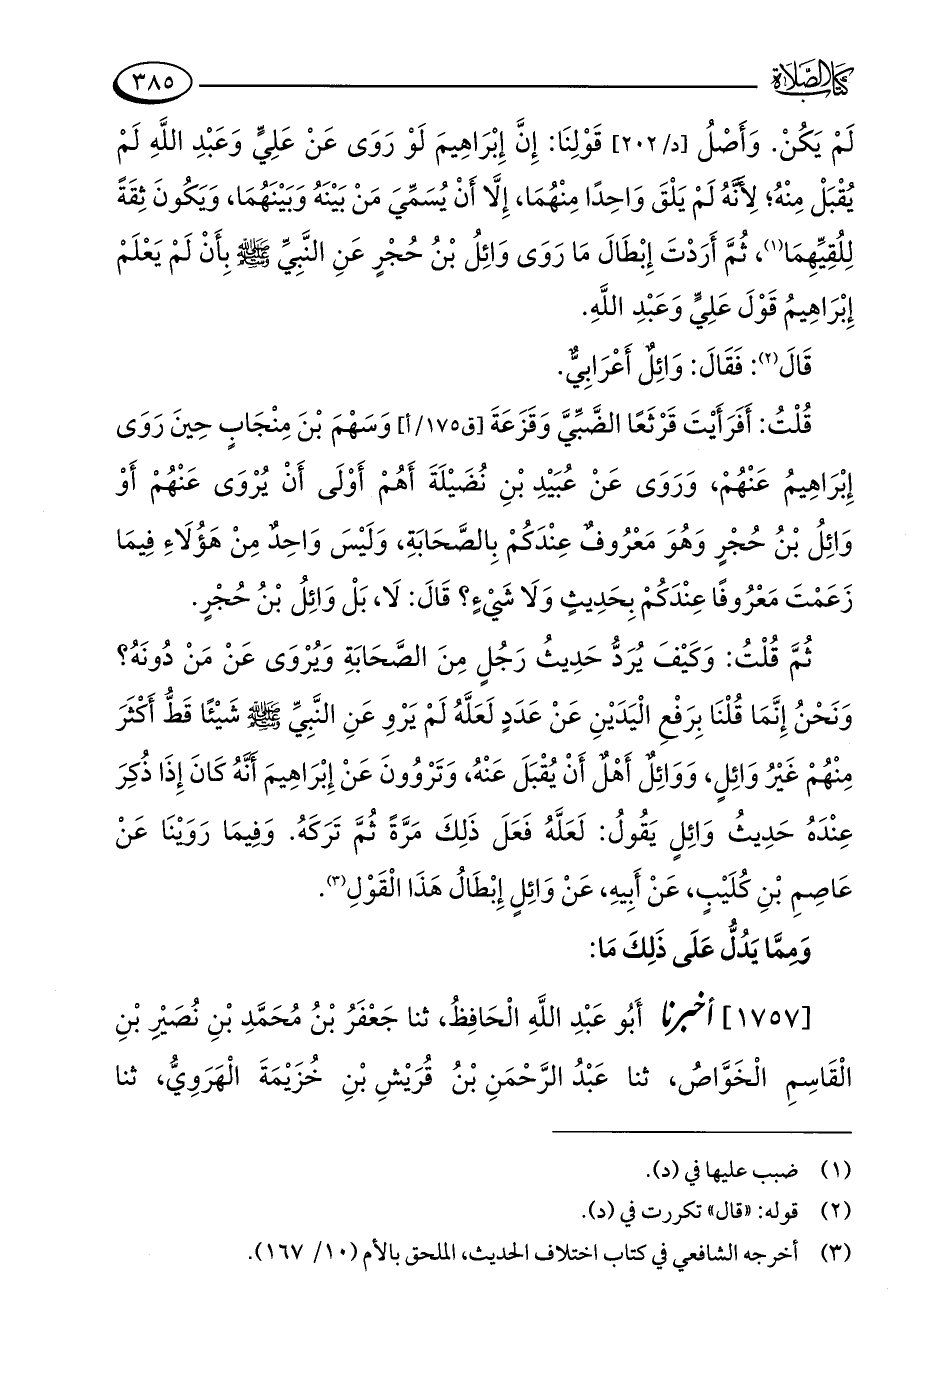 كتاب الصلاة ٣٨٥
لَمْ يَكُنْ. وَأَصْلُ [د/٢٠٢] قَوْلِنَا: إِنَّ إِبْرَاهِيمَ لَوْ رَوَى عَنْ عَلِيٍّ وَعَبْدِ اللَّهِ لَمْ
يُقْبَلْ مِنْهُ؛ لِأَنَّهُ لَمْ يَلْقَ وَاحِدًا مِنْهُمَا، إِلَّا أَنْ يُسَمِّيَ مَنْ بَيْنَهُ وَبَيْنَهُمَا، وَيَكُونَ ثِقَةً
لِلُقِيِّهِمَا(١)، ثُمَّ أَرَدْتَ إِبْطَالَ مَا رَوَى وَائِلُ بْنُ حُجْرٍ عَنِ النَّبِيِّ ﷺ بِأَنْ لَمْ يَعْلَمْ
إِبْرَاهِيمُ قَوْلَ عَلِيٍّ وَعَبْدِ اللَّهِ.
قَالَ(٢): فَقَالَ: وَائِلٌ أَعْرَابِيٌّ.
قُلْتُ: أَفَرَأَيْتَ قَرْثَعًا الضَّبِّيَّ وَقَزَعَةَ [ق١٧٥/أ] وَسَهْمَ بْنَ مِنْجَابٍ حِينَ رَوَى
إِبْرَاهِيمُ عَنْهُمْ، وَرَوَى عَنْ عُبَيْدِ بْنِ نُضَيْلَةَ أَهُمْ أَوْلَى أَنْ يُرْوَى عَنْهُمْ أَوْ
وَائِلُ بْنُ حُجْرٍ وَهُوَ مَعْرُوفٌ عِنْدَكُمْ بِالصَّحَابَةِ، وَلَيْسَ وَاحِدٌ مِنْ هَؤُلَاءِ فِيمَا
زَعَمْتَ مَعْرُوفًا عِنْدَكُمْ بِحَدِيثٍ وَلَا شَيْءٍ؟ قَالَ: لَا، بَلْ وَائِلُ بْنُ حُجْرٍ.
ثُمَّ قُلْتُ: وَكَيْفَ يُرَدُّ حَدِيثُ رَجُلٍ مِنَ الصَّحَابَةِ وَيُرْوَى عَنْ مَنْ دُونَهُ؟
وَنَحْنُ إِنَّمَا قُلْنَا بِرَفْعِ الْيَدَيْنِ عَنْ عَدَدٍ لَعَلَّهُ لَمْ يَرْوِ عَنِ النَّبِيِّ ﷺ شَيْئًا قَطُّ أَكْثَرَ
مِنْهُمْ غَيْرُ وَائِلٍ، وَوَائِلٌ أَهْلٌ أَنْ يُقْبَلَ عَنْهُ، وَتَرْوُونَ عَنْ إِبْرَاهِيمَ أَنَّهُ كَانَ إِذَا ذُكِرَ
عِنْدَهُ حَدِيثُ وَائِلٍ يَقُولُ: لَعَلَّهُ فَعَلَ ذَلِكَ مَرَّةً ثُمَّ تَرَكَهُ. وَفِيمَا رَوَيْنَا عَنْ
عَاصِمِ بْنِ كُلَيْبٍ، عَنْ أَبِيهِ، عَنْ وَائِلٍ إِبْطَالُ هَذَا الْقَوْلِ(٣).
وَمِمَّا يَدُلُّ عَلَى ذَلِكَ مَا:
[١٧٥٧] أخبرنا أَبُو عَبْدِ اللَّهِ الْحَافِظُ، ثنا جَعْفَرُ بْنُ مُحَمَّدِ بْنِ نُصَيْرِ بْنِ
الْقَاسِمِ الْخَوَّاصُ، ثنا عَبْدُ الرَّحْمَنِ بْنُ قُرَيْشِ بْنِ خُزَيْمَةَ الْهَرَوِيُّ، ثنا
(١) ضبب عليها في (د).
(٢) قوله: «قال» تكررت في (د).
(٣) أخرجه الشافعي في كتاب اختلاف الحديث، الملحق بالأم (١٠/ ١٦٧).